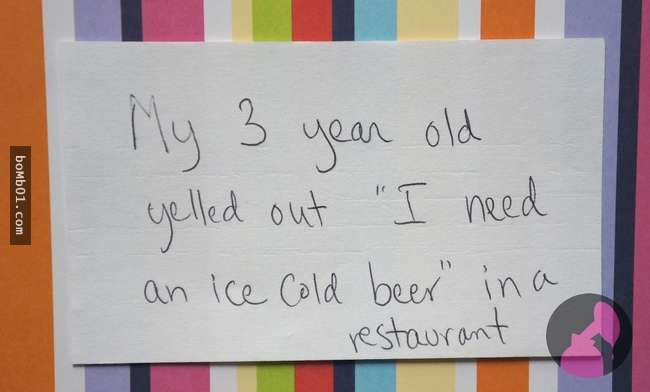 My 3 year old
yelled out "I need
an ice cold beer" in a
restaurant
boMb01.com